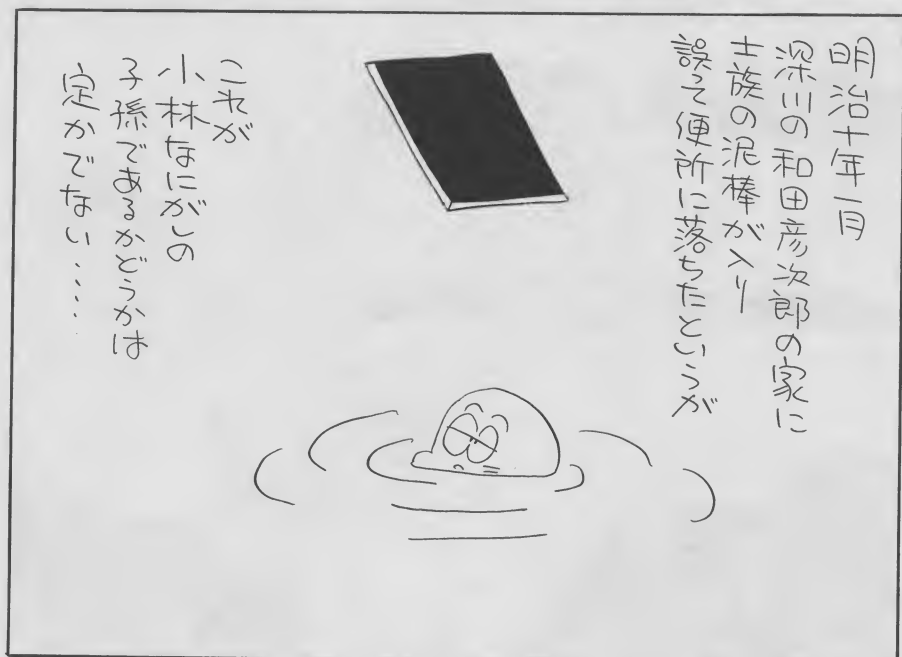 明治十年一月
深川の和田彦次郎の家に
士族の泥棒が入り
誤て便所に落ちたというが
これが
小林なにがしの
子孫であるかどうかは
定かでない‥‥